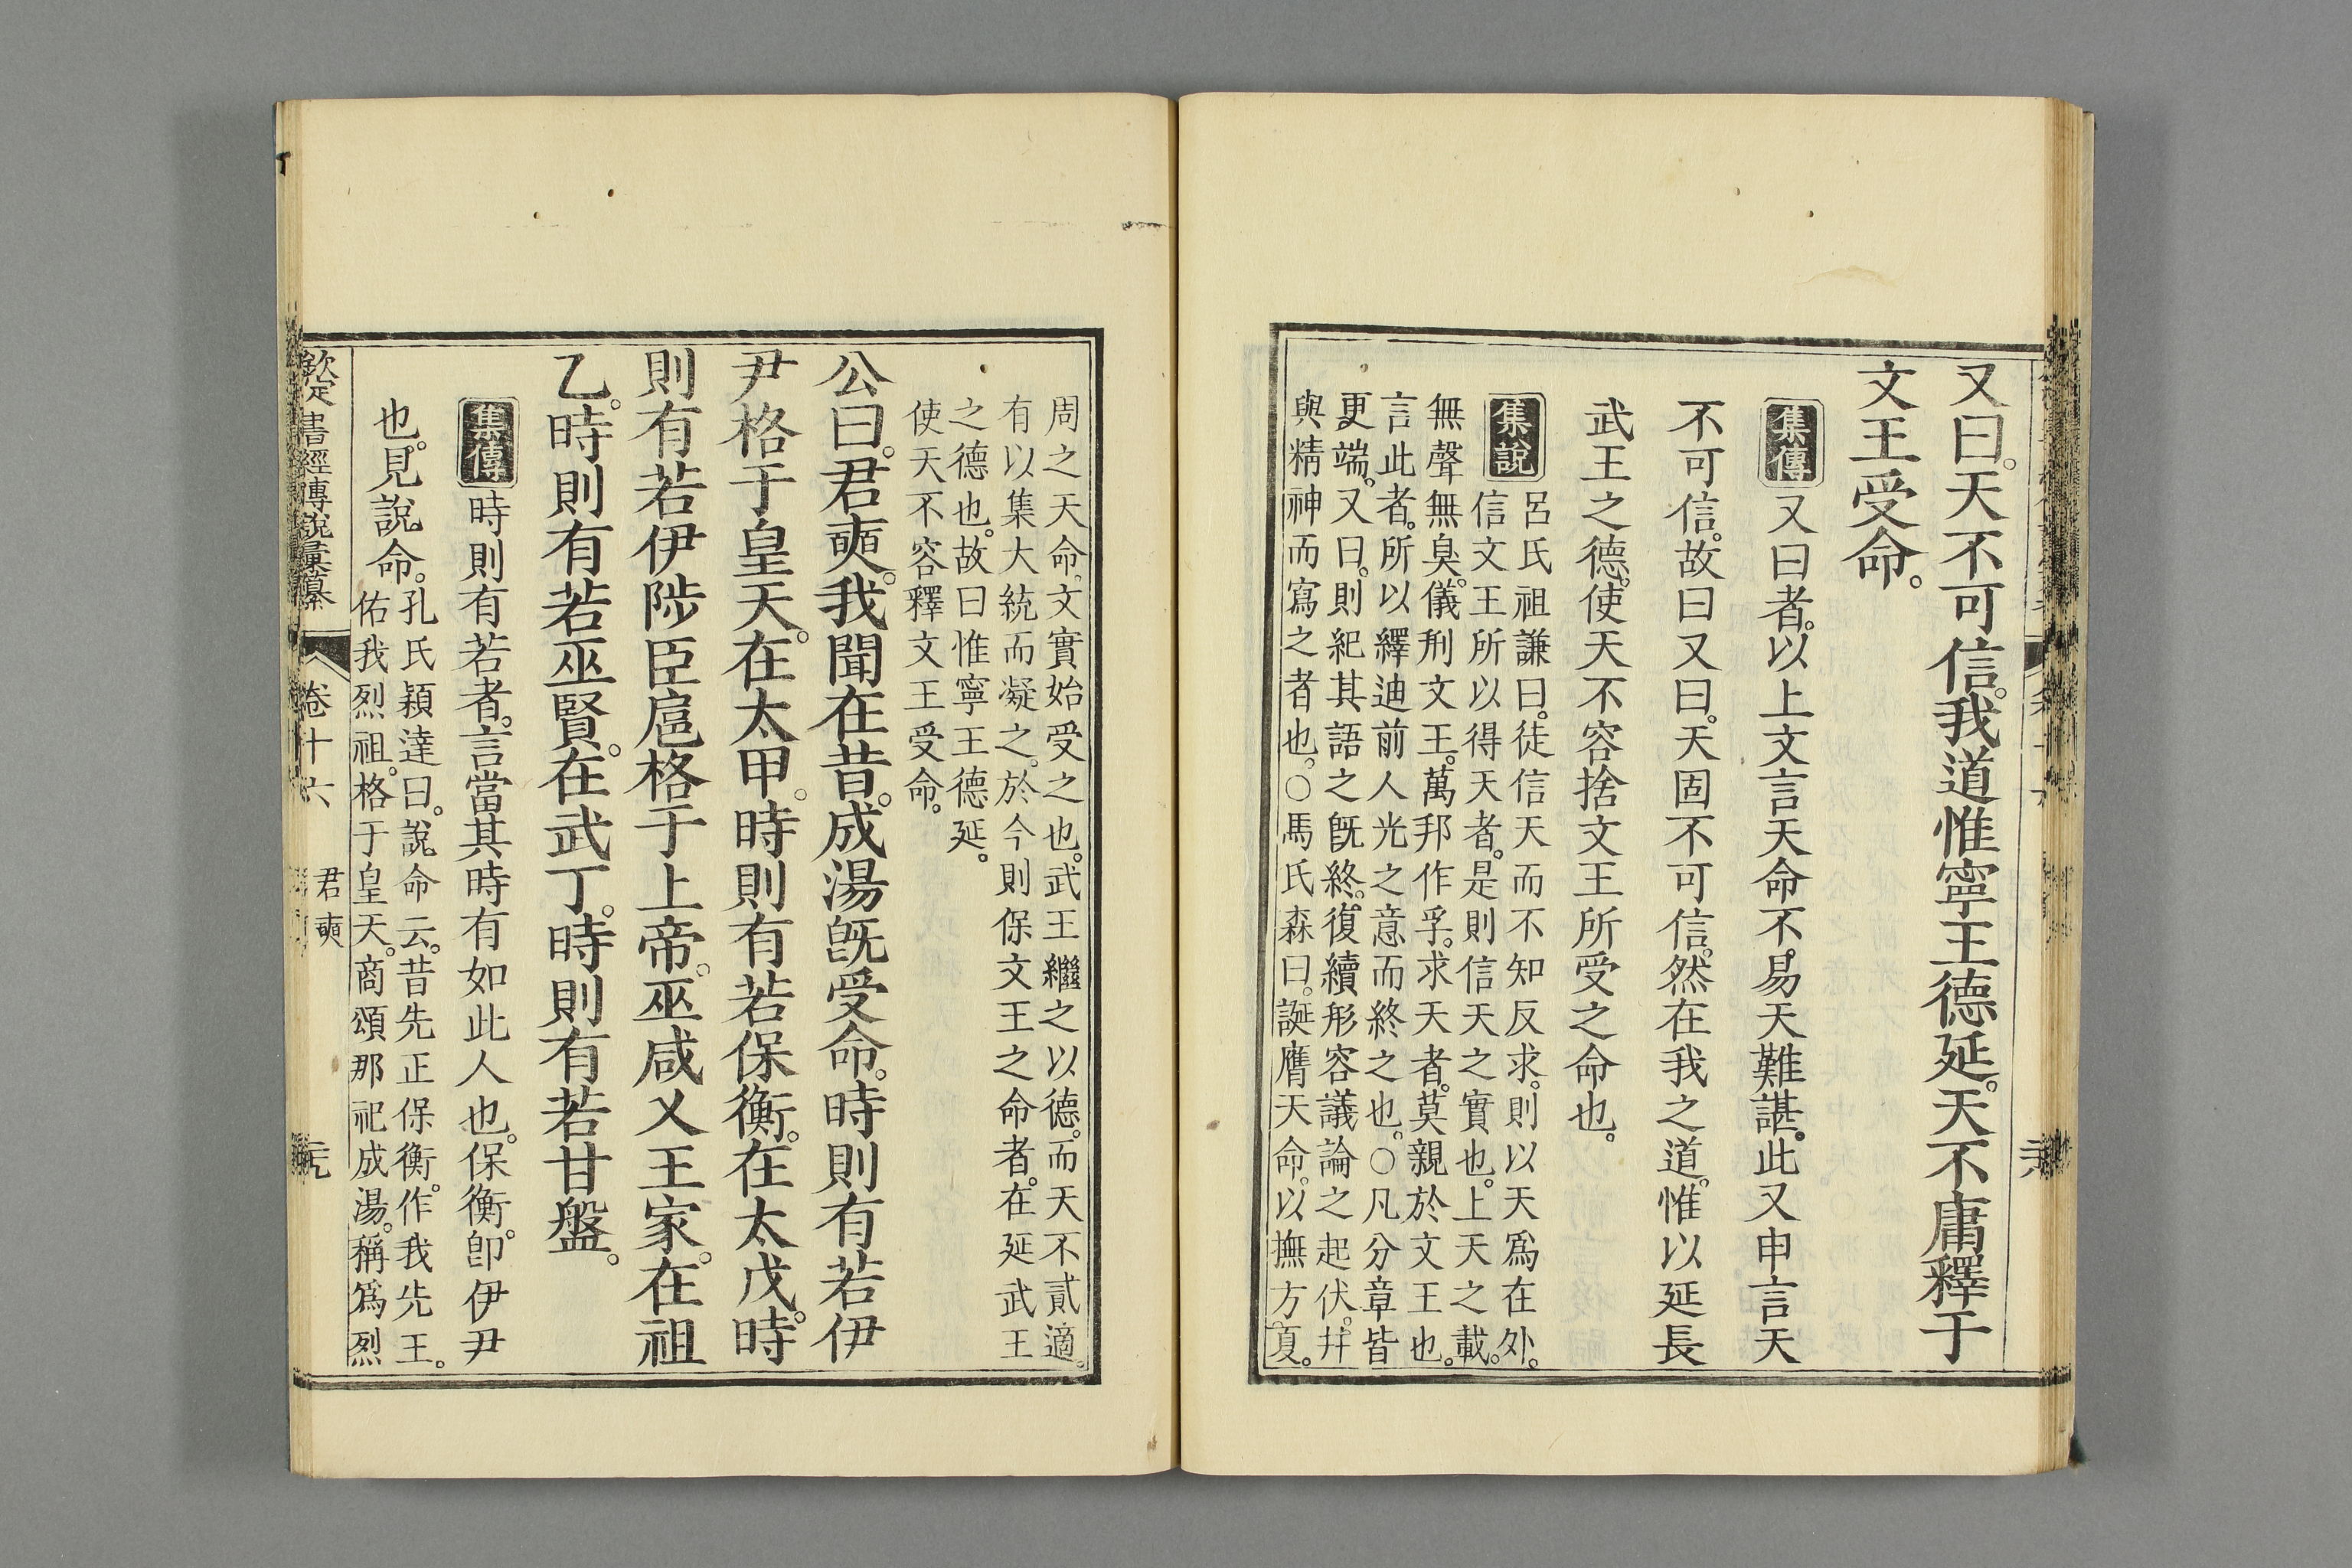 又曰。天不可信。我道惟寧王德延。天不庸釋于
文王受命。
集傳
又曰者。以上文言天命不易。天難諶。此又申言天
不可信。故曰又曰。天固不可信。然在我之道。惟以延長
武王之德。使天不容捨文王所受之命也。
集說
呂氏祖謙曰。徒信天而不知反求。則以天爲在外。
信文王所以得天者。是則信天之實也。上天之載。
無聲無臭。儀刑文王。萬邦作孚。求天者。莫親於文王也。
言此者。所以繹迪前人光之意而終之也。○凡分章皆
更端。又曰。則紀其語之旣終。復續形容議論之起伏。幷
與精神而寫之者也。○馬氏森曰。誕膺天命。以撫方夏。
周之天命。文實始受之也。武王繼之以德。而天不貳適。
有以集大統而凝之。於今則保文王之命者。在延武王
之德也。故曰惟寧王德延。
使天不容釋文王受命。
公曰。君奭。我聞在昔。成湯旣受命。時則有若伊
尹格于皇天。在太甲。時則有若保衡。在太戊。時
則有若伊陟臣扈格于上帝。巫咸乂王家。在祖
乙。時則有若巫賢。在武丁。時則有若甘盤。
集傳
時則有若者。言當其時有如此人也。保衡。卽伊尹
也。見說命。
孔氏穎達曰。說命云。昔先正保衡。作我先王。
佑我烈祖。格于皇天。商頌那祀成湯。稱爲烈
欽定書經傳說彙纂
卷十六
君奭